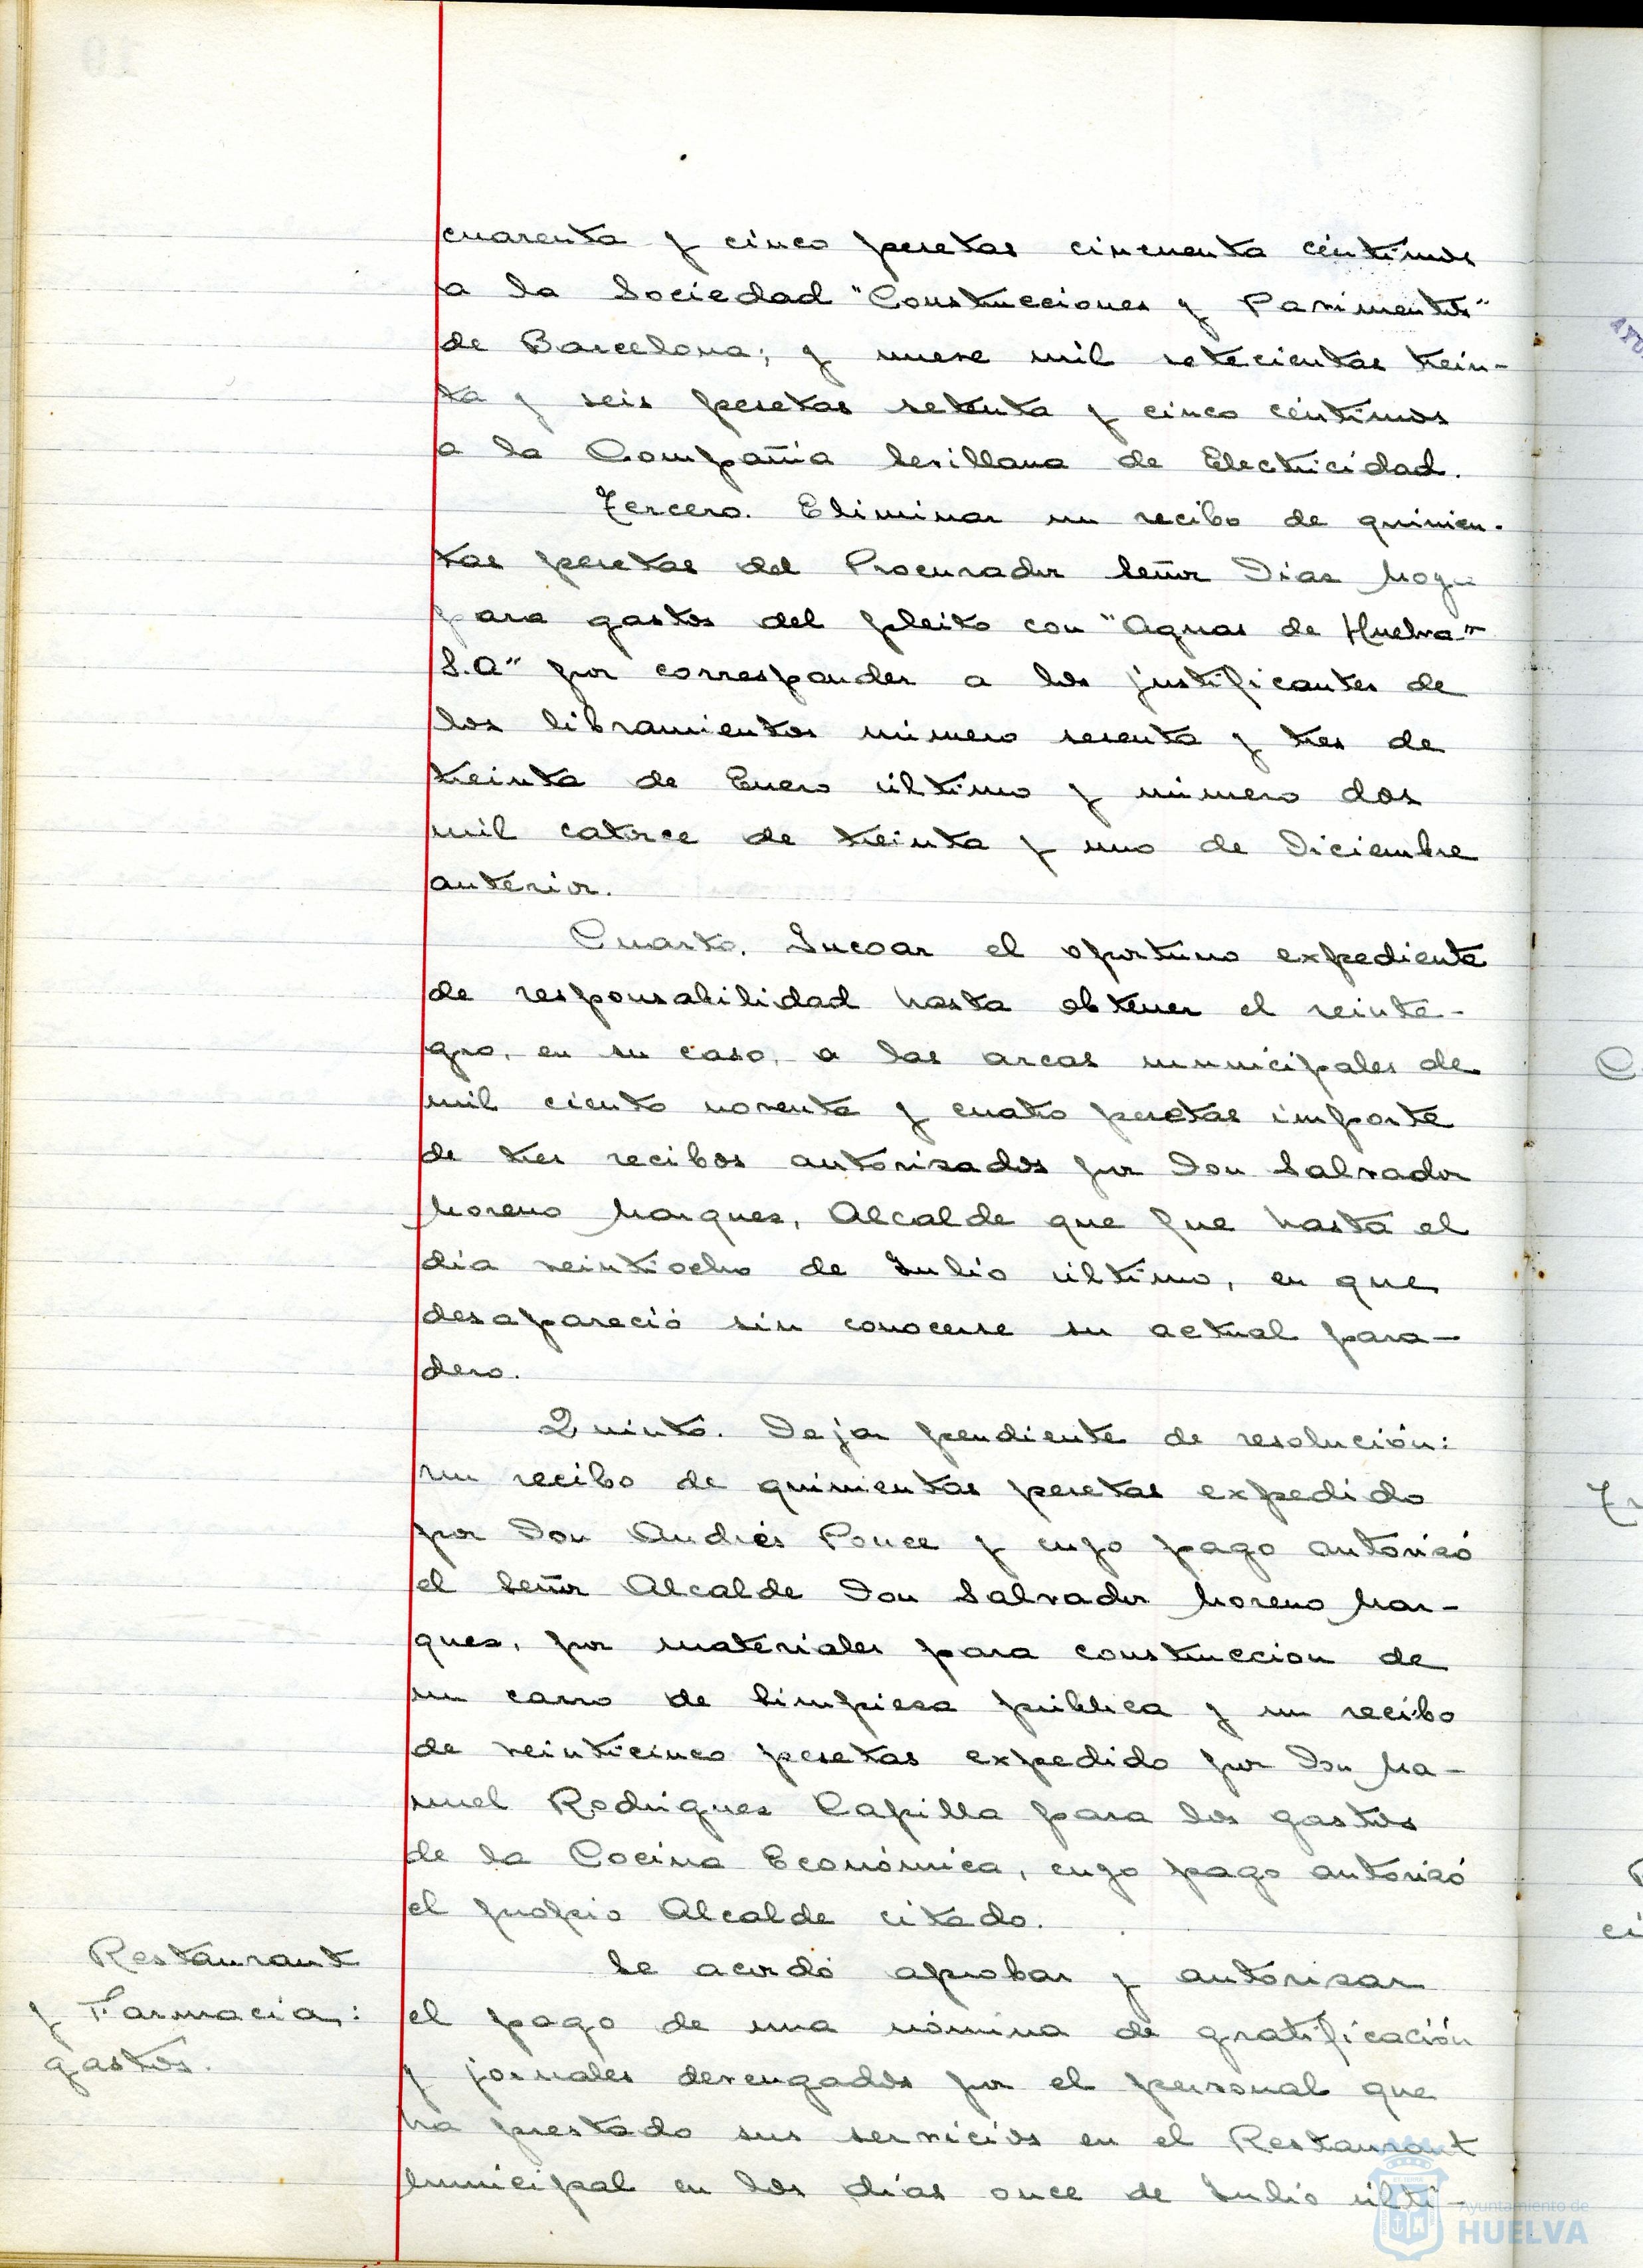 cuarenta y cinco pesetas cincuenta céntimos
a la Sociedad "Construcciones y Pavimentos"
de Barcelona; y nueve mil setecientas trein-
ta y seis pesetas setenta y cinco céntimos
a la Compañia Sevillana de Electricidad.
Tercero. Eliminar un recibo de quinien-
tas pesetas del Procurador Señor Dias
para gastos del pleito con "Aguas de Huelva
S.A" por corresponder a los justificantes de
los libramientos número sesenta y tres de
treinta de Enero último y número dos
mil catorce de treinta y uno de Diciembre
anterior.
Cuarto. Incoar el oportuno expediente
de responsabilidad hasta obtener el reinte-
gro, en su caso, a las arcas municipales de
mil ciento noventa y cuatro pesetas importe
de tres recibos autorizados por Don Salvador
Moreno Marquez, Alcalde que fue hasta el
dia veintiocho de Julio último, en que
desapareció sin conocerse su actual para-
dero.
Quinto. Dejar pendiente de resolución:
un recibo de quinientas pesetas expedido
por Don Andrés Ponce y cuyo pago autorizó
el Señor Alcalde Don Salvador Moreno Mar-
quez, por materiales para construccion de
un carro de limpieza pública y un recibo
de veinticinco pesetas expedido por Don Ma-
nuel Rodriguez Capilla para los gastos
de la Cocina Económica, cuyo pago autorizó
el propio Alcalde citado.
Restaurant
y Farmacia:
gastos.
Se acordó aprobar y autorizar
el pago de una nómina de gratificación
y jornales devengados por el personal que
ha prestado sus servicios en el Restaurant
Municipal en los dias once de Julio últi-
Ayuntamiento de
HUELVA